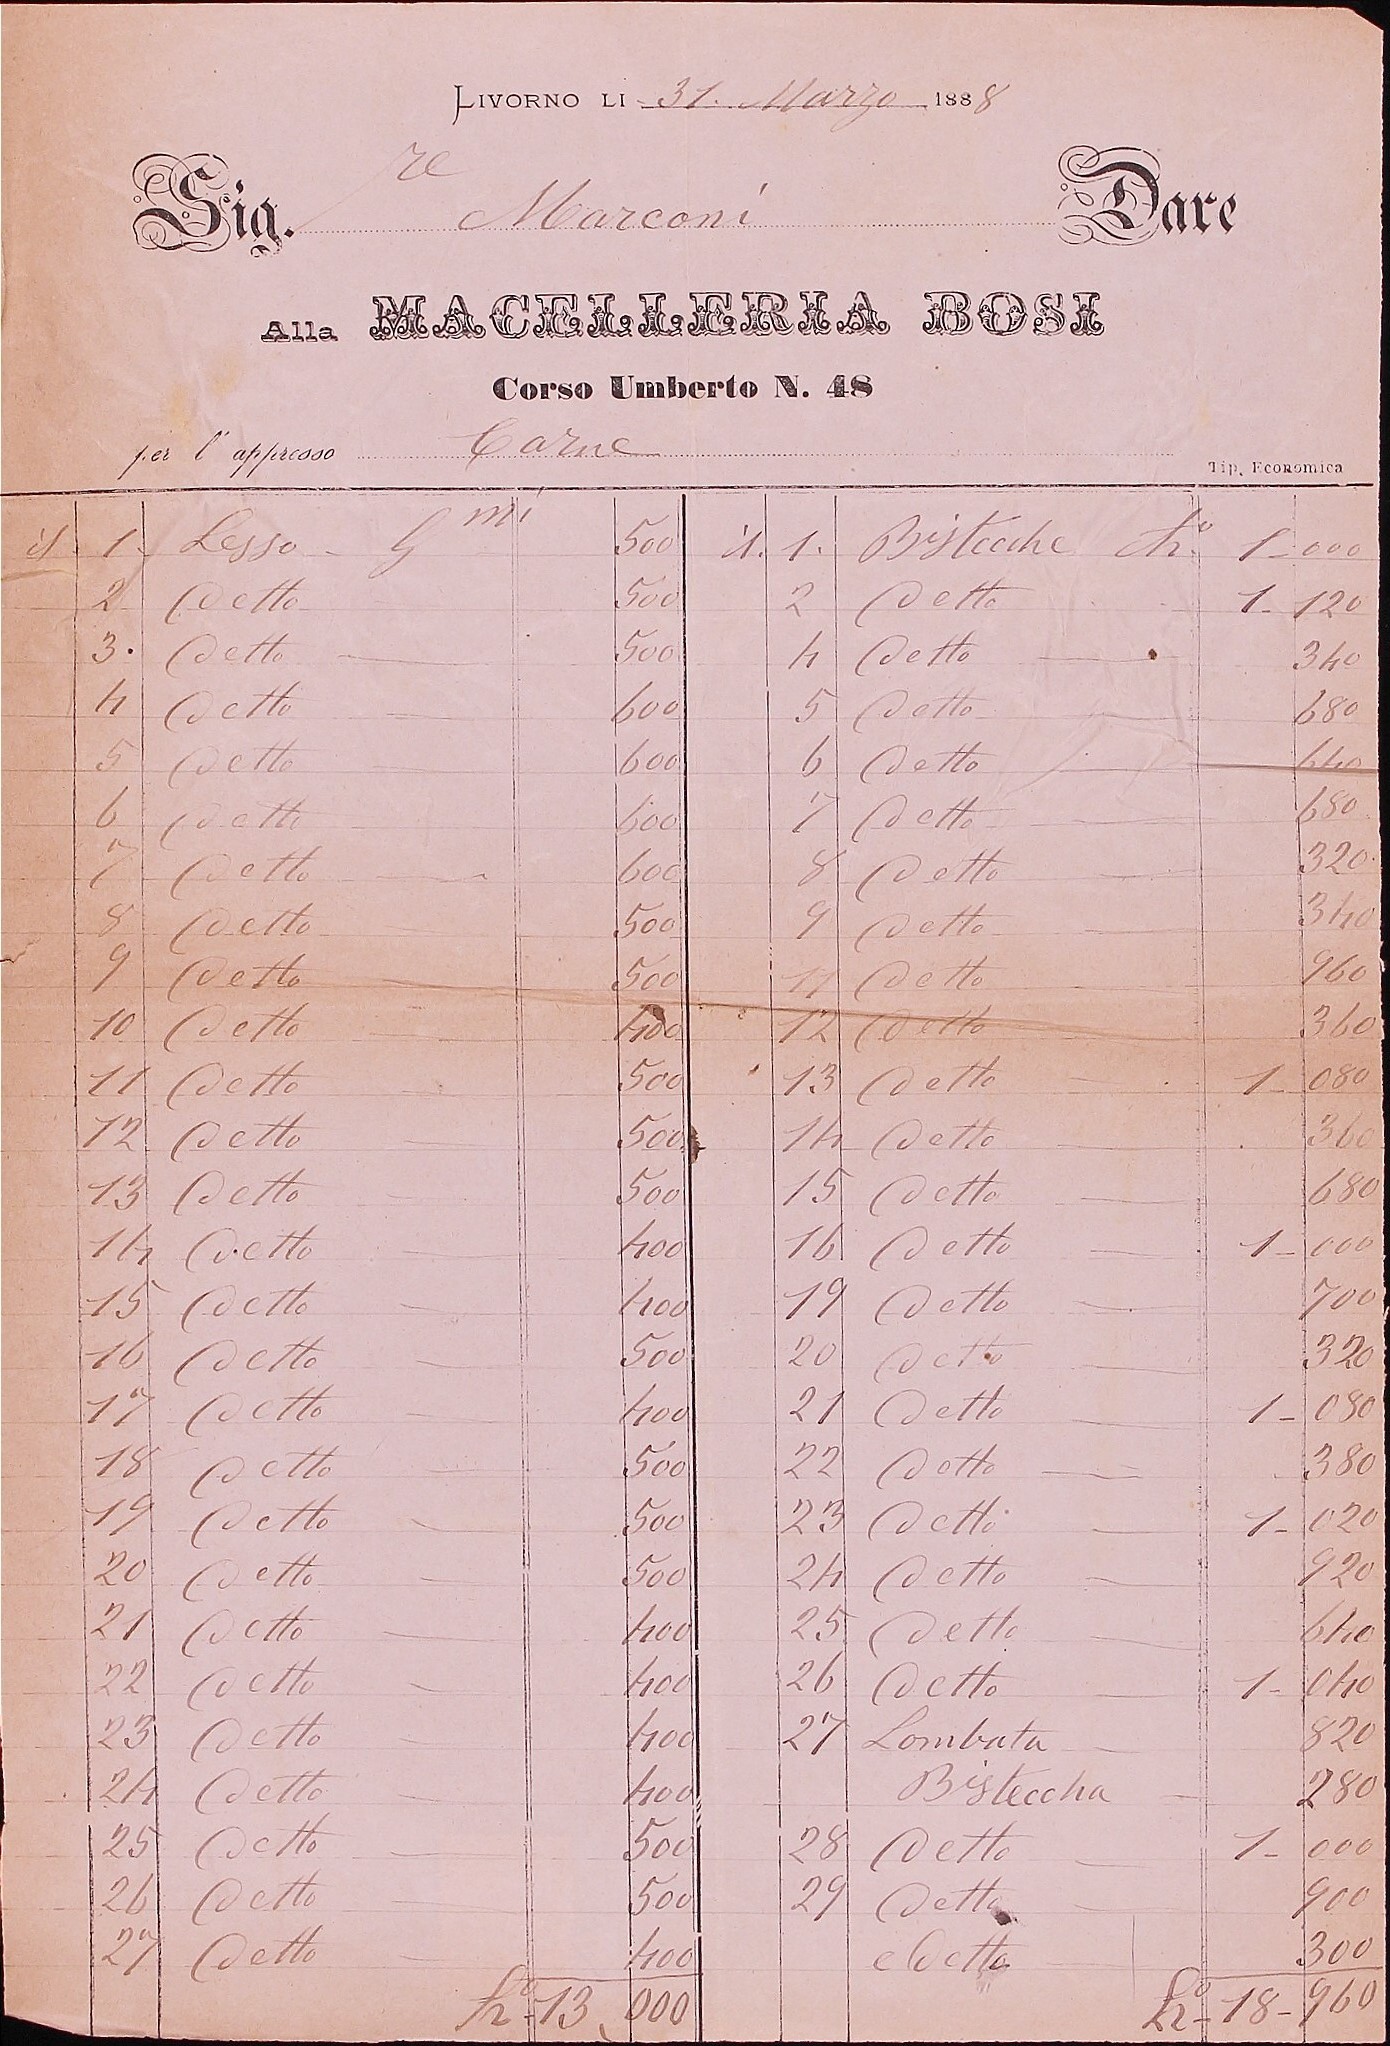 Livorno li 31. Marzo 1888
Sig.re Marconi Dare
Alla MACELLERIA BOSI
Corso Umberto N. 48
per l'appresso Carne
Tip. Economica
il 1. Lesso Gmi 500
2 Detto 500
3. Detto 500
4 Detto 600
5 Detto 600
6 Detto 600
7 Detto 600
8 Detto 500
9 Detto 500
10 Detto 400
11 Detto 500
12 Detto 500
13 Detto 500
14 Detto 400
15 Detto 400
16 Detto 500
17 Detto 400
18 Detto 500
19 Detto 500
20 Detto 500
21 Detto 400
22 Detto 400
23 Detto 400
24 Detto 400
25 Detto 500
26 Detto 500
27 Detto 400
Ko 13,000
il. 1. Bistecche Ko. 1-000
2 Detto 1-120
4 Detto 340
5 Detto 680
6 Detto 640
7 Detto 680
8 Detto 320
9 Detto 340
11 Detto 960
12 Detto 360
13 Detto 1-080
14 Detto 360
15 Detto 680
16 Detto 1-000
19 Detto 700
20 Detto 320
21 Detto 1-080
22 Detto 380
23 Detto 1-020
24 Detto 920
25 Detto 640
26 Detto 1-040
27 Lombata 820
Bisteccha 280
28 Detto 1-000
29 Detta 900
e Detta 300
Ko-18-960